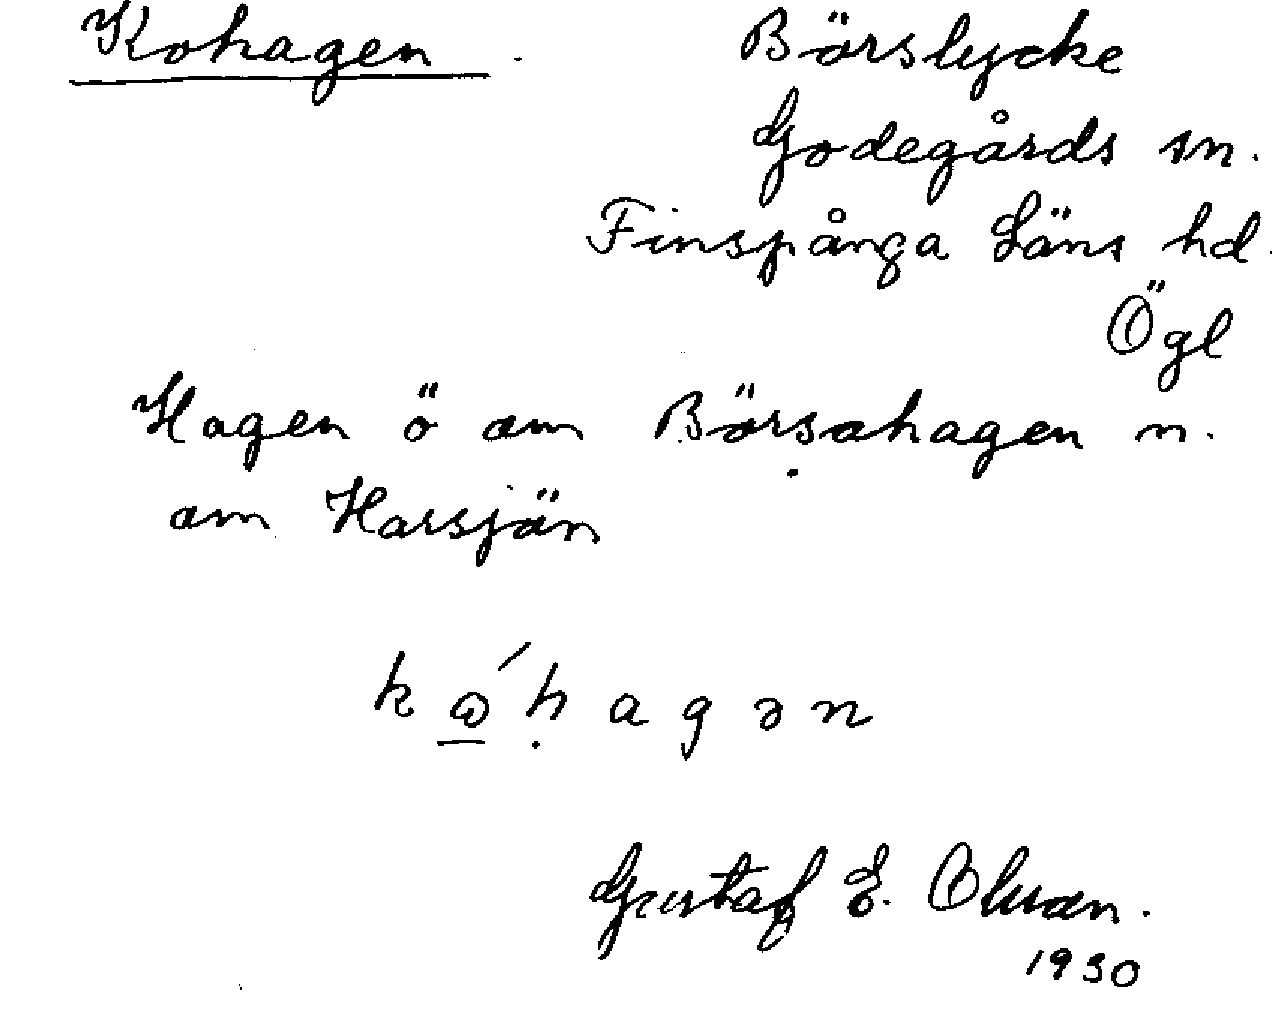 Kohagen. Börslycke
Godegårds sn.
Finspånga Läns hd.
Ögl
Hagen ö om Börsahagen n.
om Harsjön
hagən
Gustaf E. Olsson.
1930